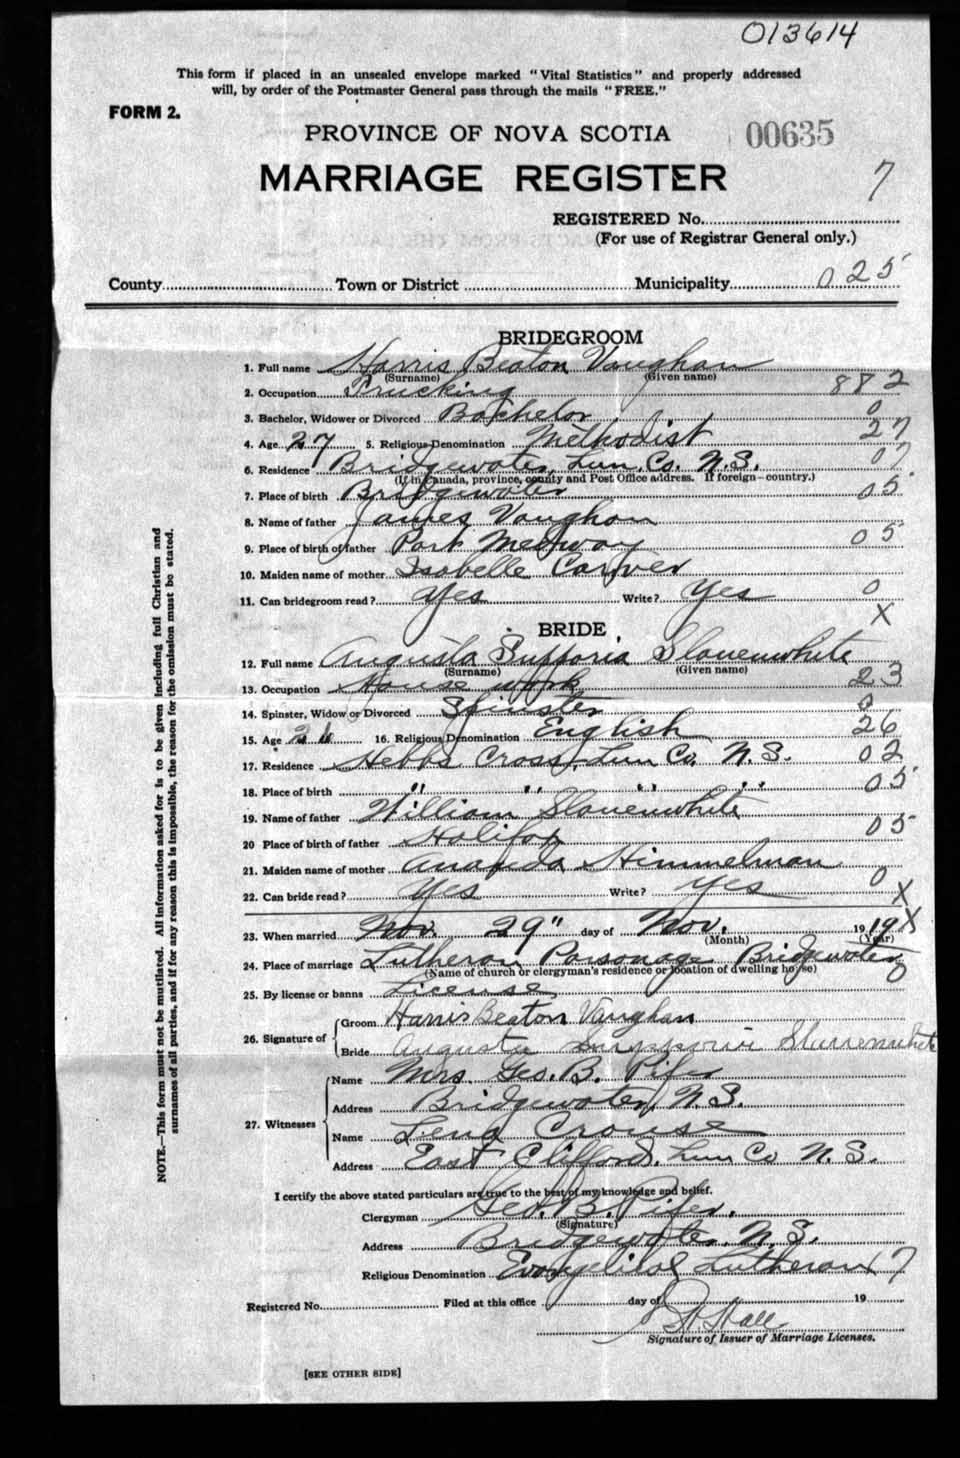 013614
This form if placed in an unsealed envelope marked "Vital Statistics" and properly addressed
will, by order of the Postmaster General pass through the mails "FREE."
FORM 2.
PROVINCE OF NOVA SCOTIA 00635
MARRIAGE REGISTER 7
REGISTERED No.
(For use of Registrar General only.)
County Town or District Municipality 025
BRIDEGROOM
1. Full name Harris Beaton Vaughan
(Surname) (Given name)
2. Occupation Trucking 882
3. Bachelor, Widower or Divorced Bachelor 0
4. Age 27 5. Religious Denomination Methodist 27
6. Residence Bridgewater, Lun. Co. N.S. 07
(If in Canada, province, county and Post Office address. If foreign—country.)
7. Place of birth Bridgewater 05
8. Name of father James Vaughan
9. Place of birth of father Port Medway 05
10. Maiden name of mother Isabelle Carver
11. Can bridegroom read? Yes Write? Yes 0
X
BRIDE
12. Full name Augusta Supporia Slauenwhite
(Surname) (Given name)
13. Occupation House work 23
14. Spinster, Widow or Divorced Spinster 0
15. Age 26 16. Religious Denomination English 26
17. Residence Hebbs Cross, Lun Co. N.S. 02
18. Place of birth " " " " 05
19. Name of father William Slauenwhite
20 Place of birth of father Halifax 05
21. Maiden name of mother Amanda Himmelman
22. Can bride read? Yes Write? Yes 0 X
23. When married Nov. 29" day of Nov. 1919 X
(Month) (Year)
24. Place of marriage Lutheran Parsonage Bridgewater 0
(Name of church or clergyman's residence or location of dwelling house)
25. By license or banns License
26. Signature of Groom Harris Beaton Vaughan
Bride Augusta Slauenwhite
27. Witnesses
Name Mrs. Geo. B. Pifer
Address Bridgewater, N.S.
Name Lena Crouse
Address East Clifford, Lun Co N.S.
I certify the above stated particulars are true to the best of my knowledge and belief.
Clergyman Geo. B. Pifer.
(Signature)
Address Bridgewater, N.S.
Religious Denomination Evangelical Lutheran 17
Registered No. Filed at this office day of 19
Hall
Signature of Issuer of Marriage Licenses.
[SEE OTHER SIDE]
NOTE.—This form must not be mutilated. All information asked for is to be given including full Christian and
surnames of all parties, and if for any reason this is impossible, the reason for the omission must be stated.